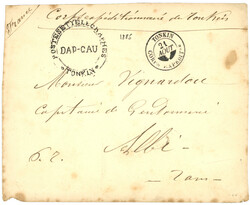 Corps expéditionnaire du Tonkin
1885
POSTES ET TELEGRAPHES
DAP-CAU
TONKIN
TONKIN
21
AOUT
CORPS EXPEDRE
Monsieur Vignardou
Capitaine de Gendarmerie
Albi
Tarn